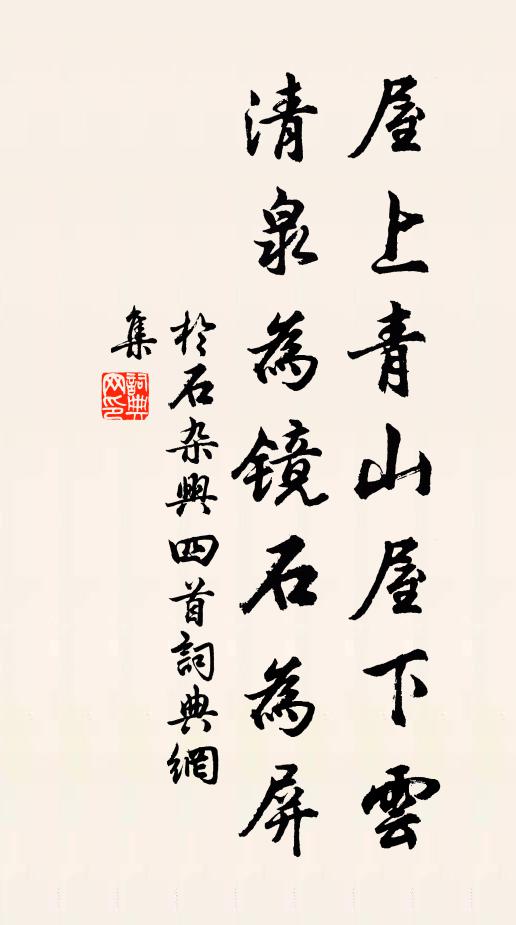 屋上青山屋下雲
清泉為镜石為屏
於石杂興四首詞典網
集
詞典
网印